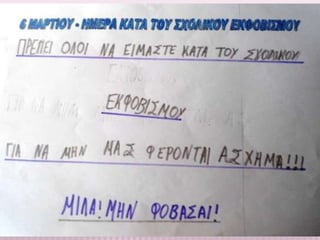 6 ΜΑΡΤΙΟΥ - ΗΜΕΡΑ ΚΑΤΑ ΤΟΥ ΣΧΟΛΙΚΟΥ ΕΚΦΟΒΙΣΜΟΥ
ΠΡΕΠΕΙ ΟΛΟΙ ΝΑ ΕΙΜΑΣΤΕ ΚΑΤΑ ΤΟΥ ΣΧΟΛΙΚΟΥ
ΕΚΦΟΒΙΣΜΟΥ
ΓΙΑ ΝΑ ΜΗΝ ΜΑΣ ΦΕΡΟΝΤΑΙ ΑΣΧΗΜΑ!!!
ΜΙΛΑ! ΜΗΝ ΦΟΒΑΣΑΙ!